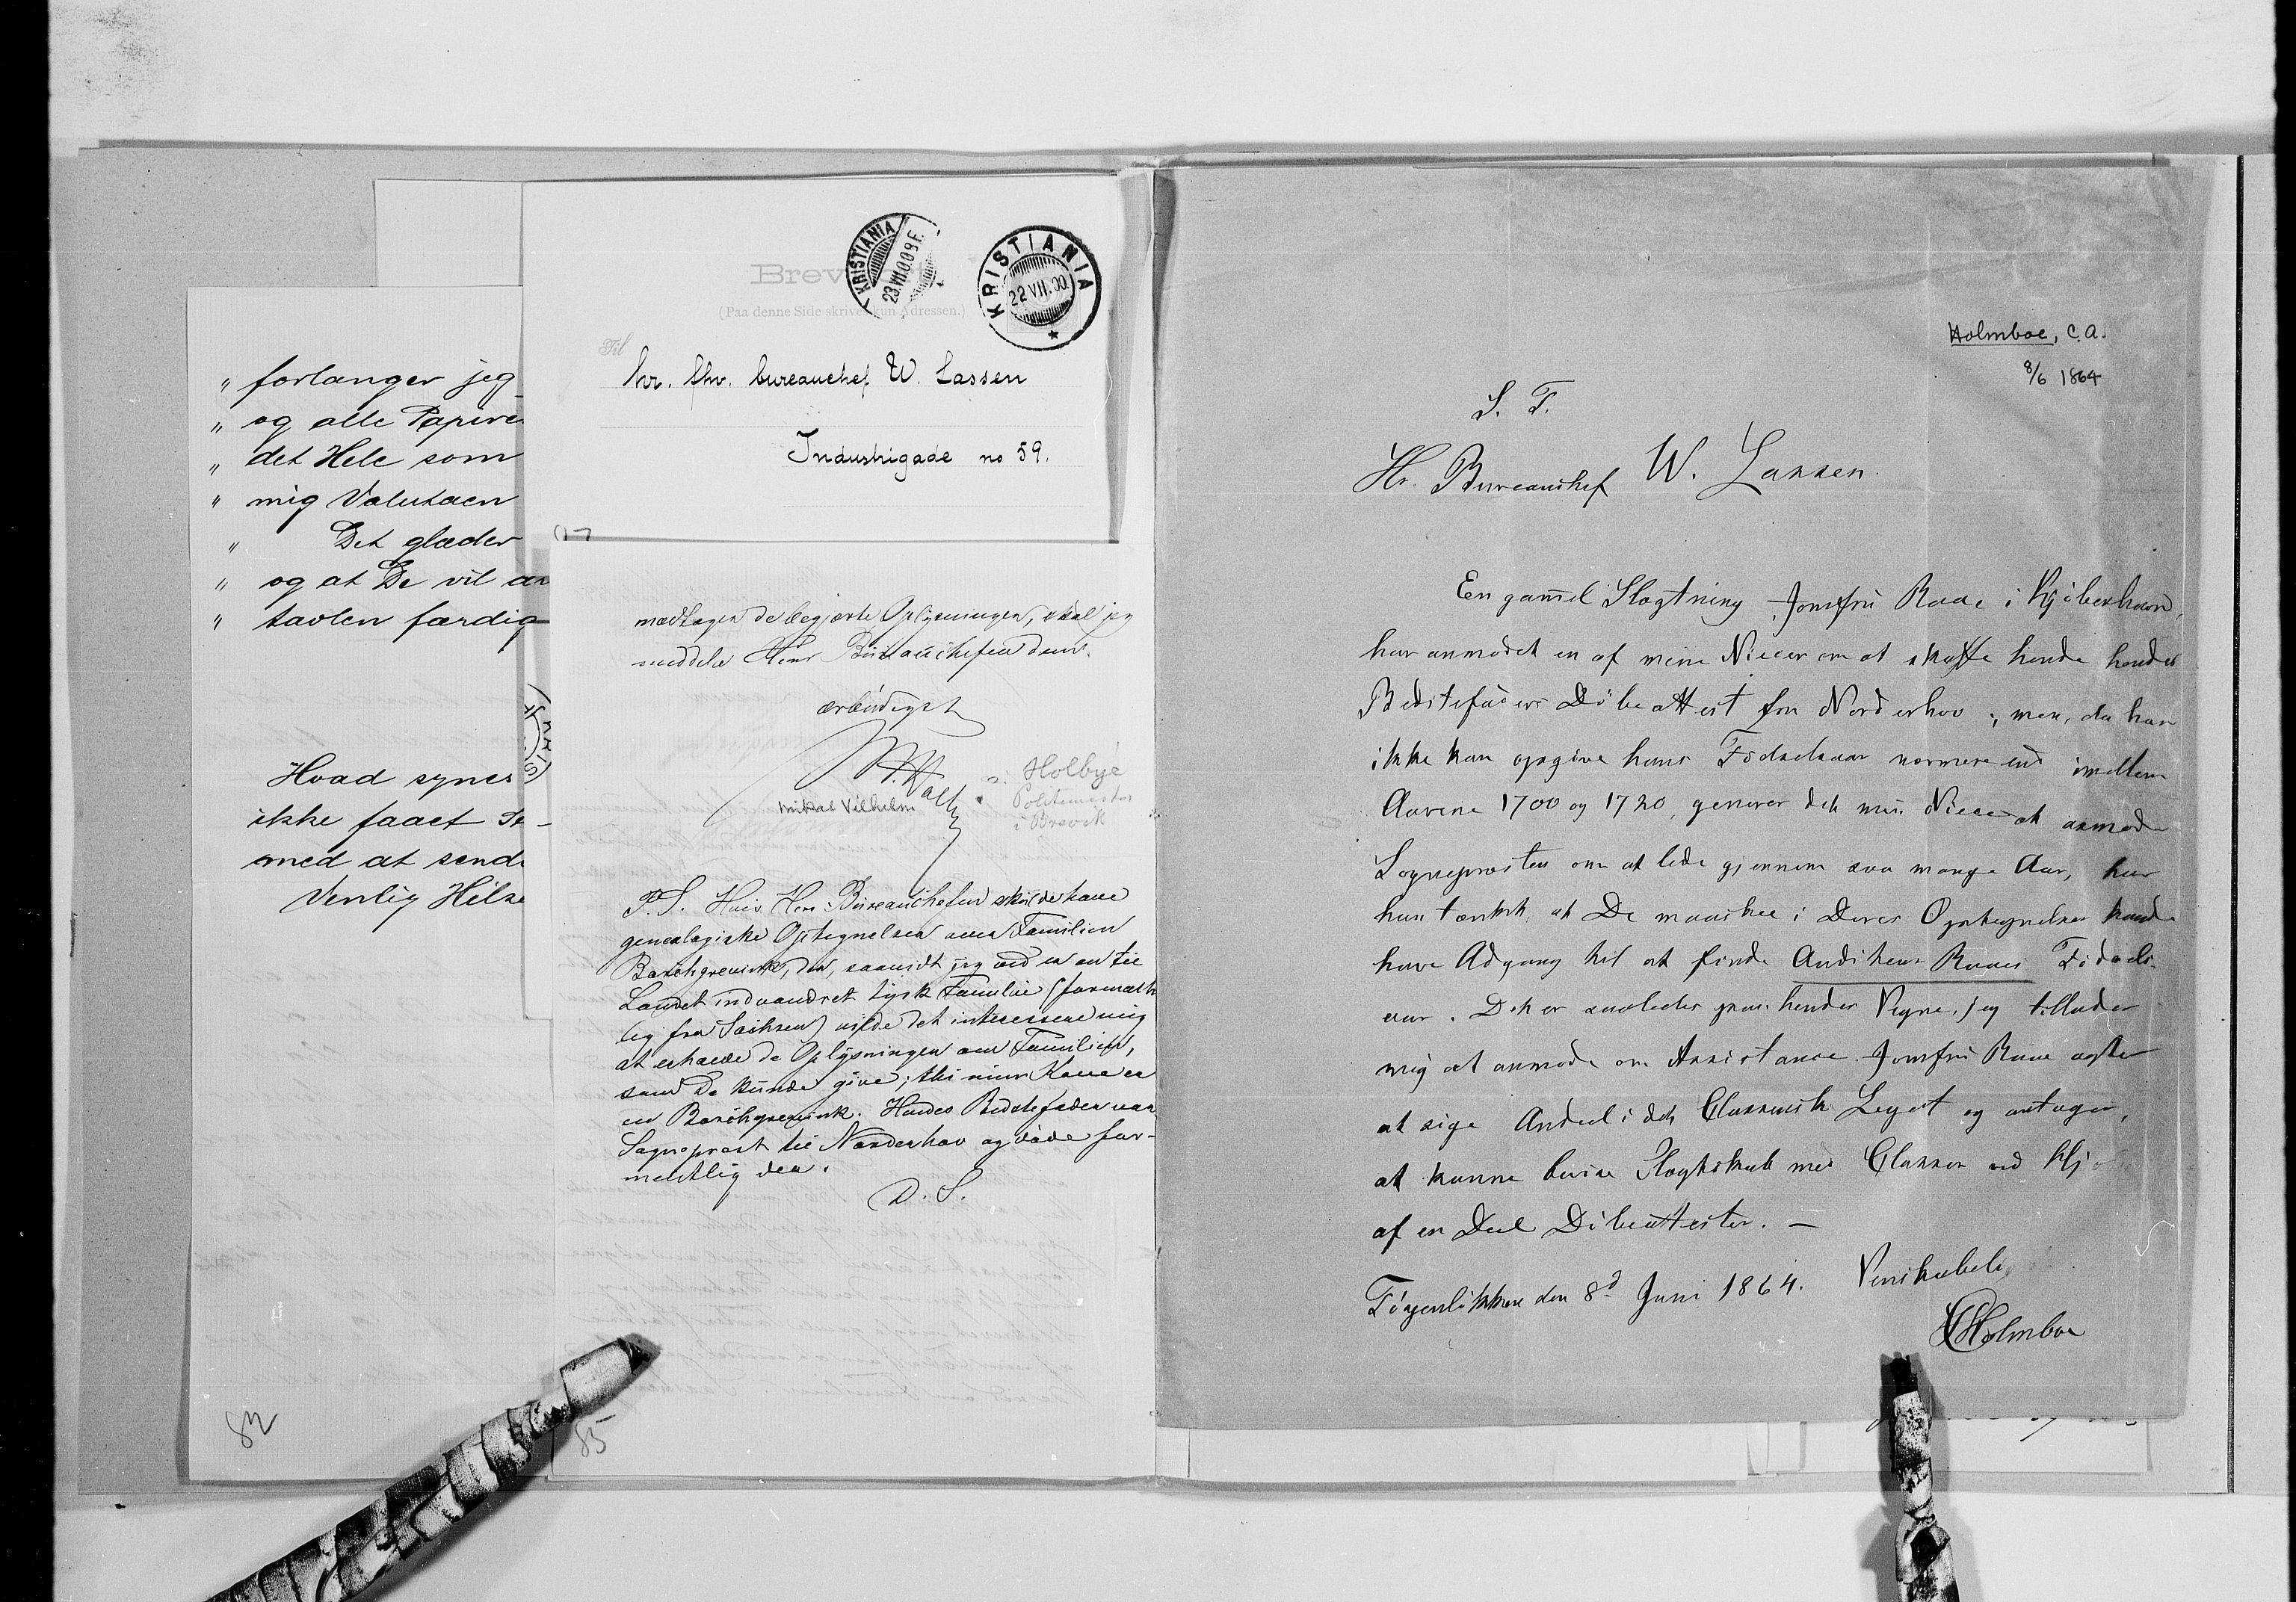 „ forlanger jeg
„ og alle Papire
„ det Hele som
„ mig Valutaen
„ Det glæder
„ og at De vil
„ tavlen færdig
Hvad synes
ikke faaet
med at send
Venlig Hils
82
KRISTIANIA
23 VII 00 9 F.
KRISTIANIA
22 VII. 00
Brev
(Paa denne Side skrives kun Adressen.)
Til
hr. fhv. bureauchef W. Lassen
Industrigade no 59.
modtager de begjærte Oplysninger, skal jeg
meddele Herr Bureauchefen dem.
ærbödigst
Mikal Vilhelm
Holbye
Politimester
i Brevik
P.S. Hvis Herr Bureauchefen skulde have
genealogiske Optegnelser om Familien
Borchgrevink, der, saavidt jeg ved er en til
Landet indvandret tysk Familie (forment-
lig fra Sachsen) vilde det interessere mig
at erholde de Oplysninger om Familien,
som De kunde give; thi min Kone er
en Borchgrevink. Hendes Bedstefader var
Sogneprest til Norderhov og döde for-
mentlig der.
D. S.
85
Holmboe, C.A.
8/6 1864
S. T.
Hr. Bureauchef W. Lassen.
En gammel Slægtning, Jomfru Raae i Kjöbenhavn,
har anmodet en af mine Niecer om at skaffe hende hendes
Bedstefaders Döbeattest fra Norderhov; men, da hun
ikke kan opgive hans Födselsaar nærmere end imellem
Aarene 1700 og 1720, generer det min Niece at anmode
Sognepresten om at lede gjennem saa mange Aar, har
hun tænkt, at De maaskee i Deres Optegnelser kunde
have Adgang til at finde Auditeur Raaes Födsels-
aar. Det er saaledes paa hendes Vegne, jeg tillader
mig at anmode om Assistance. Jomfru Raae agter
at söge Andeel i det Classenske Legat og antager,
at kunne bevise Slægtskab med Classen ved Hj
af en Deel Döbeattester. —
Töyenlökken den 8d Juni 1864.
Venskabelig
CHolmboe